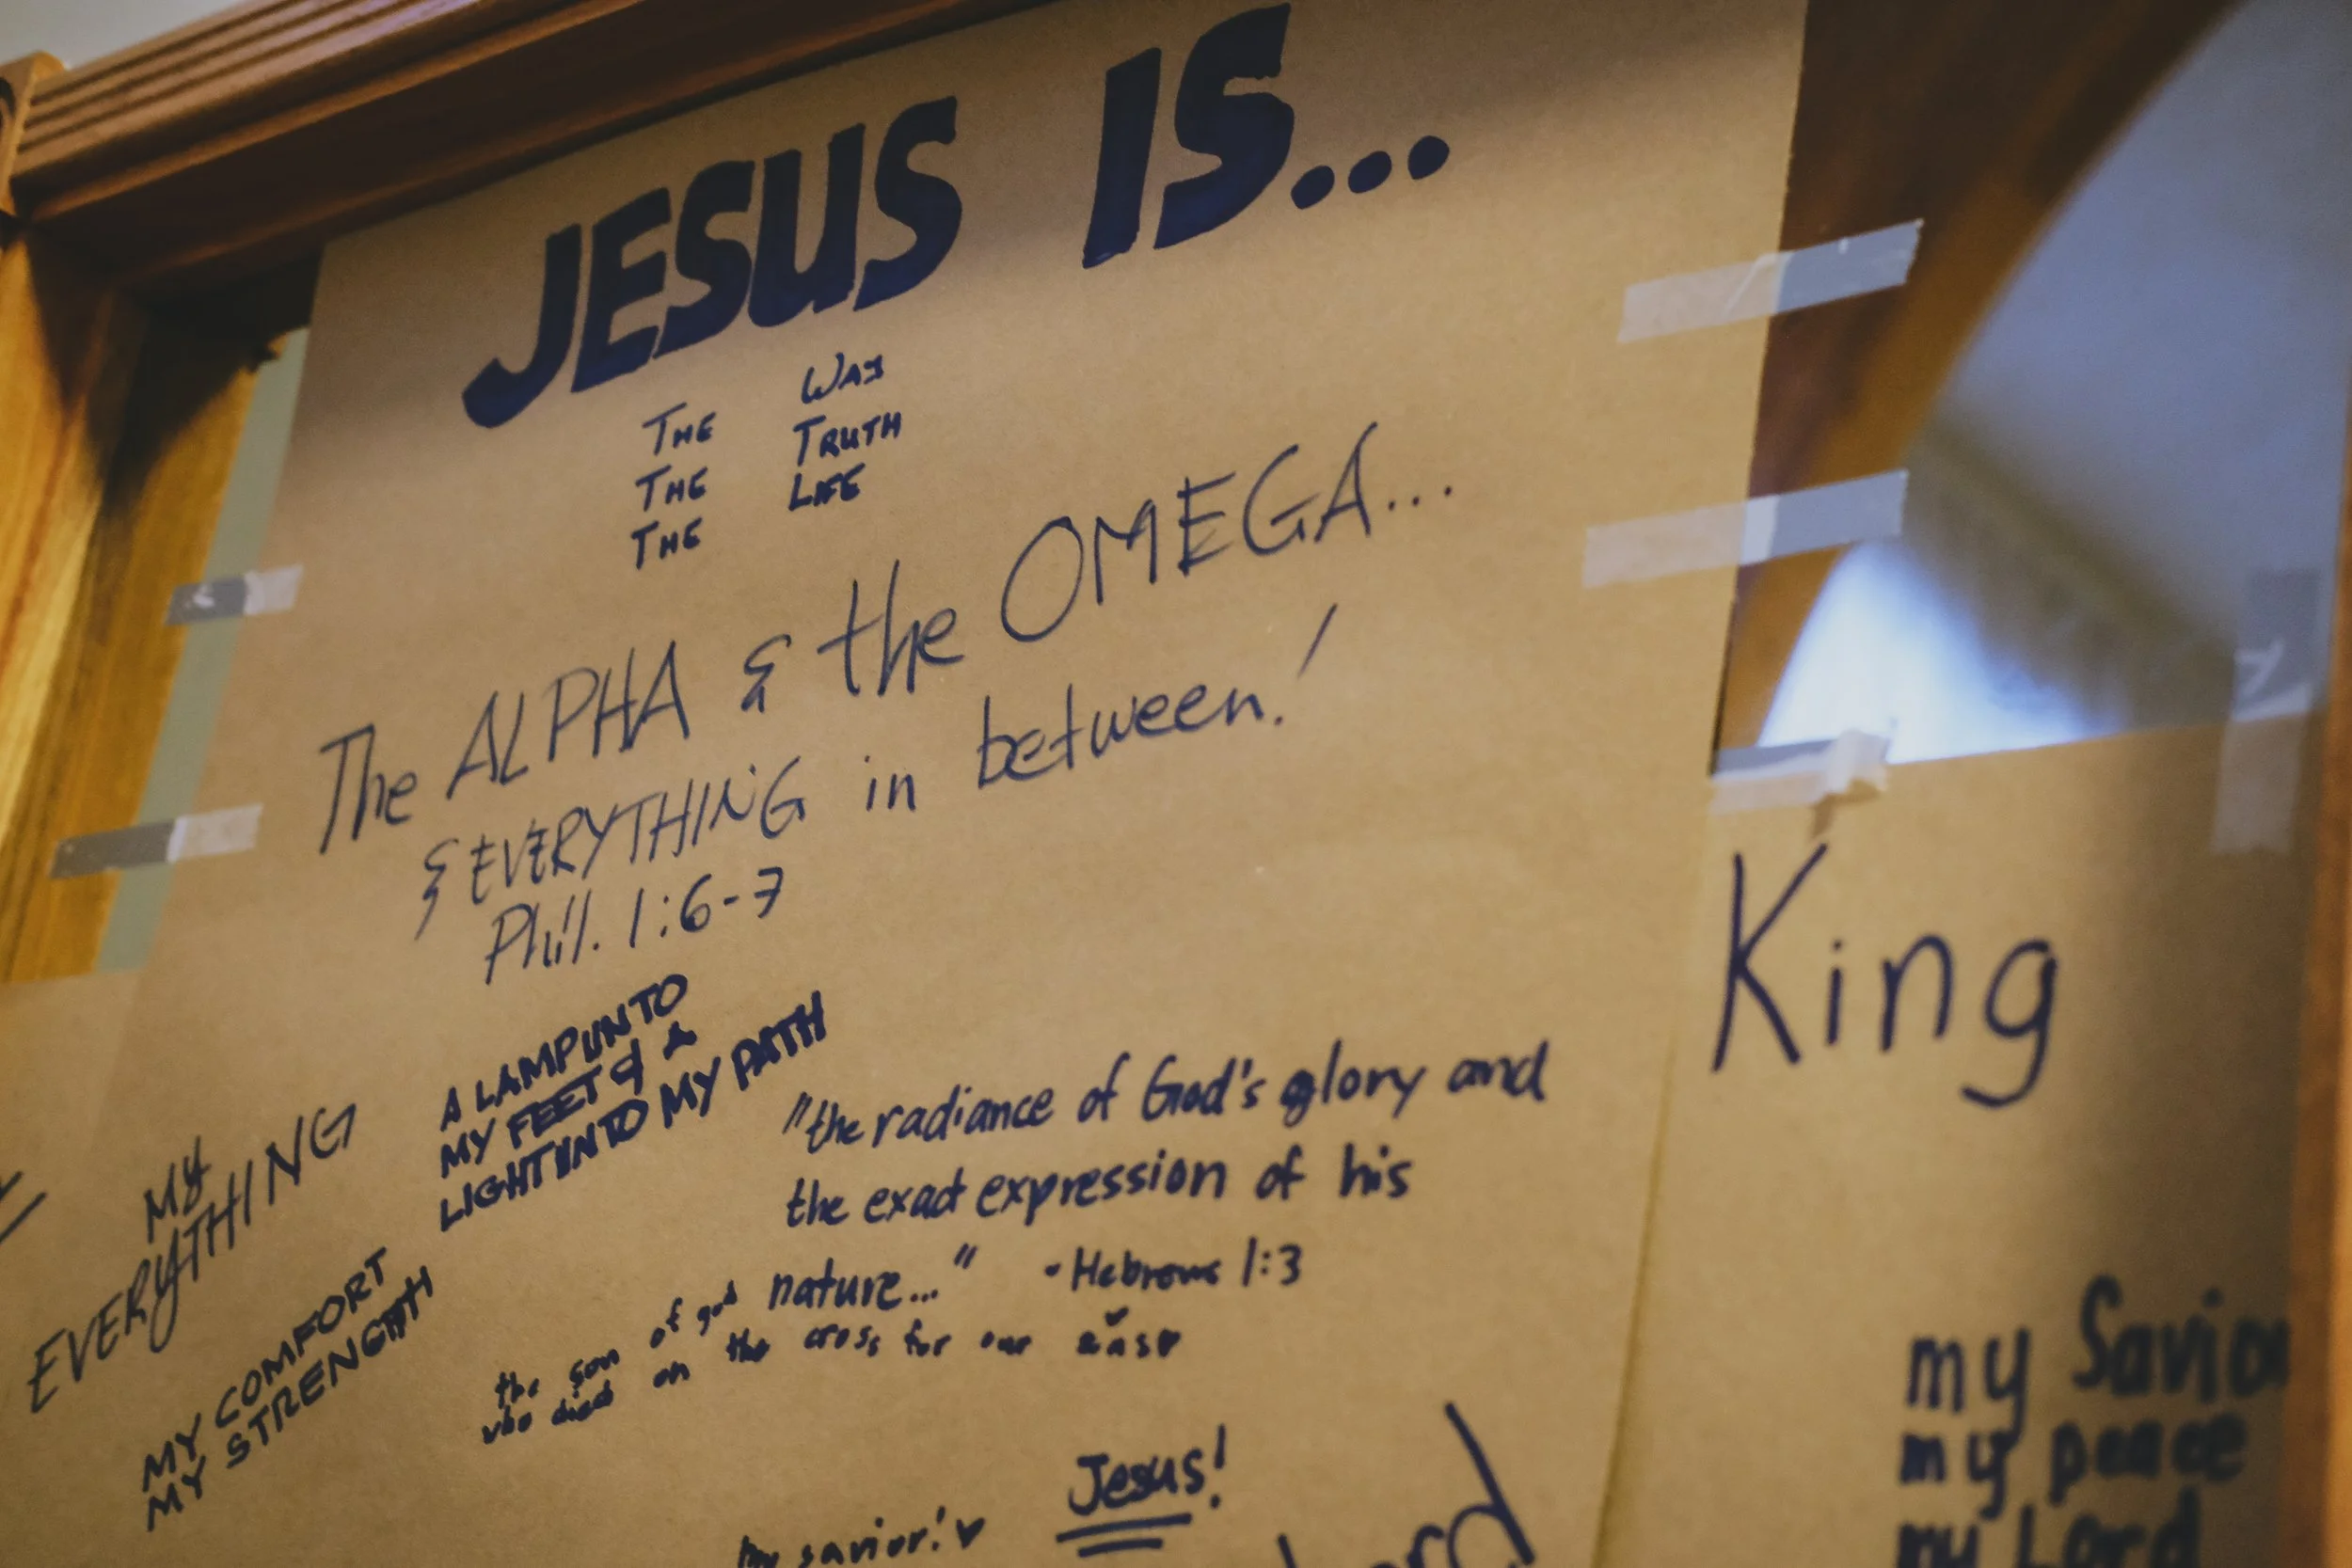 JESUS IS...
THE WAY
THE TRUTH
THE LIFE
The ALPHA & the OMEGA...
& EVERYTHING in between!
Phil. 1:6-7
A LAMP UNTO
MY FEET & A
LIGHT UNTO MY PATH
MY
EVERYTHING
MY COMFORT
MY STRENGTH
"the radiance of God's glory and
the exact expression of his
nature..." - Hebrews 1:3
the son of god
who died on the cross for our
Jesus!
my savior! ♥
King
my Savior
my peace
my Lord